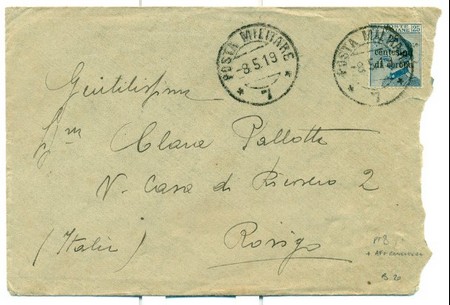 POSTA MILITARE
-8.5.19
* 7 *
POSTA MILITARE
centesimi
di corona
Gentilissima
Clara Pallotta
V. Casa di Ricovero 2
(Italia) Rovigo